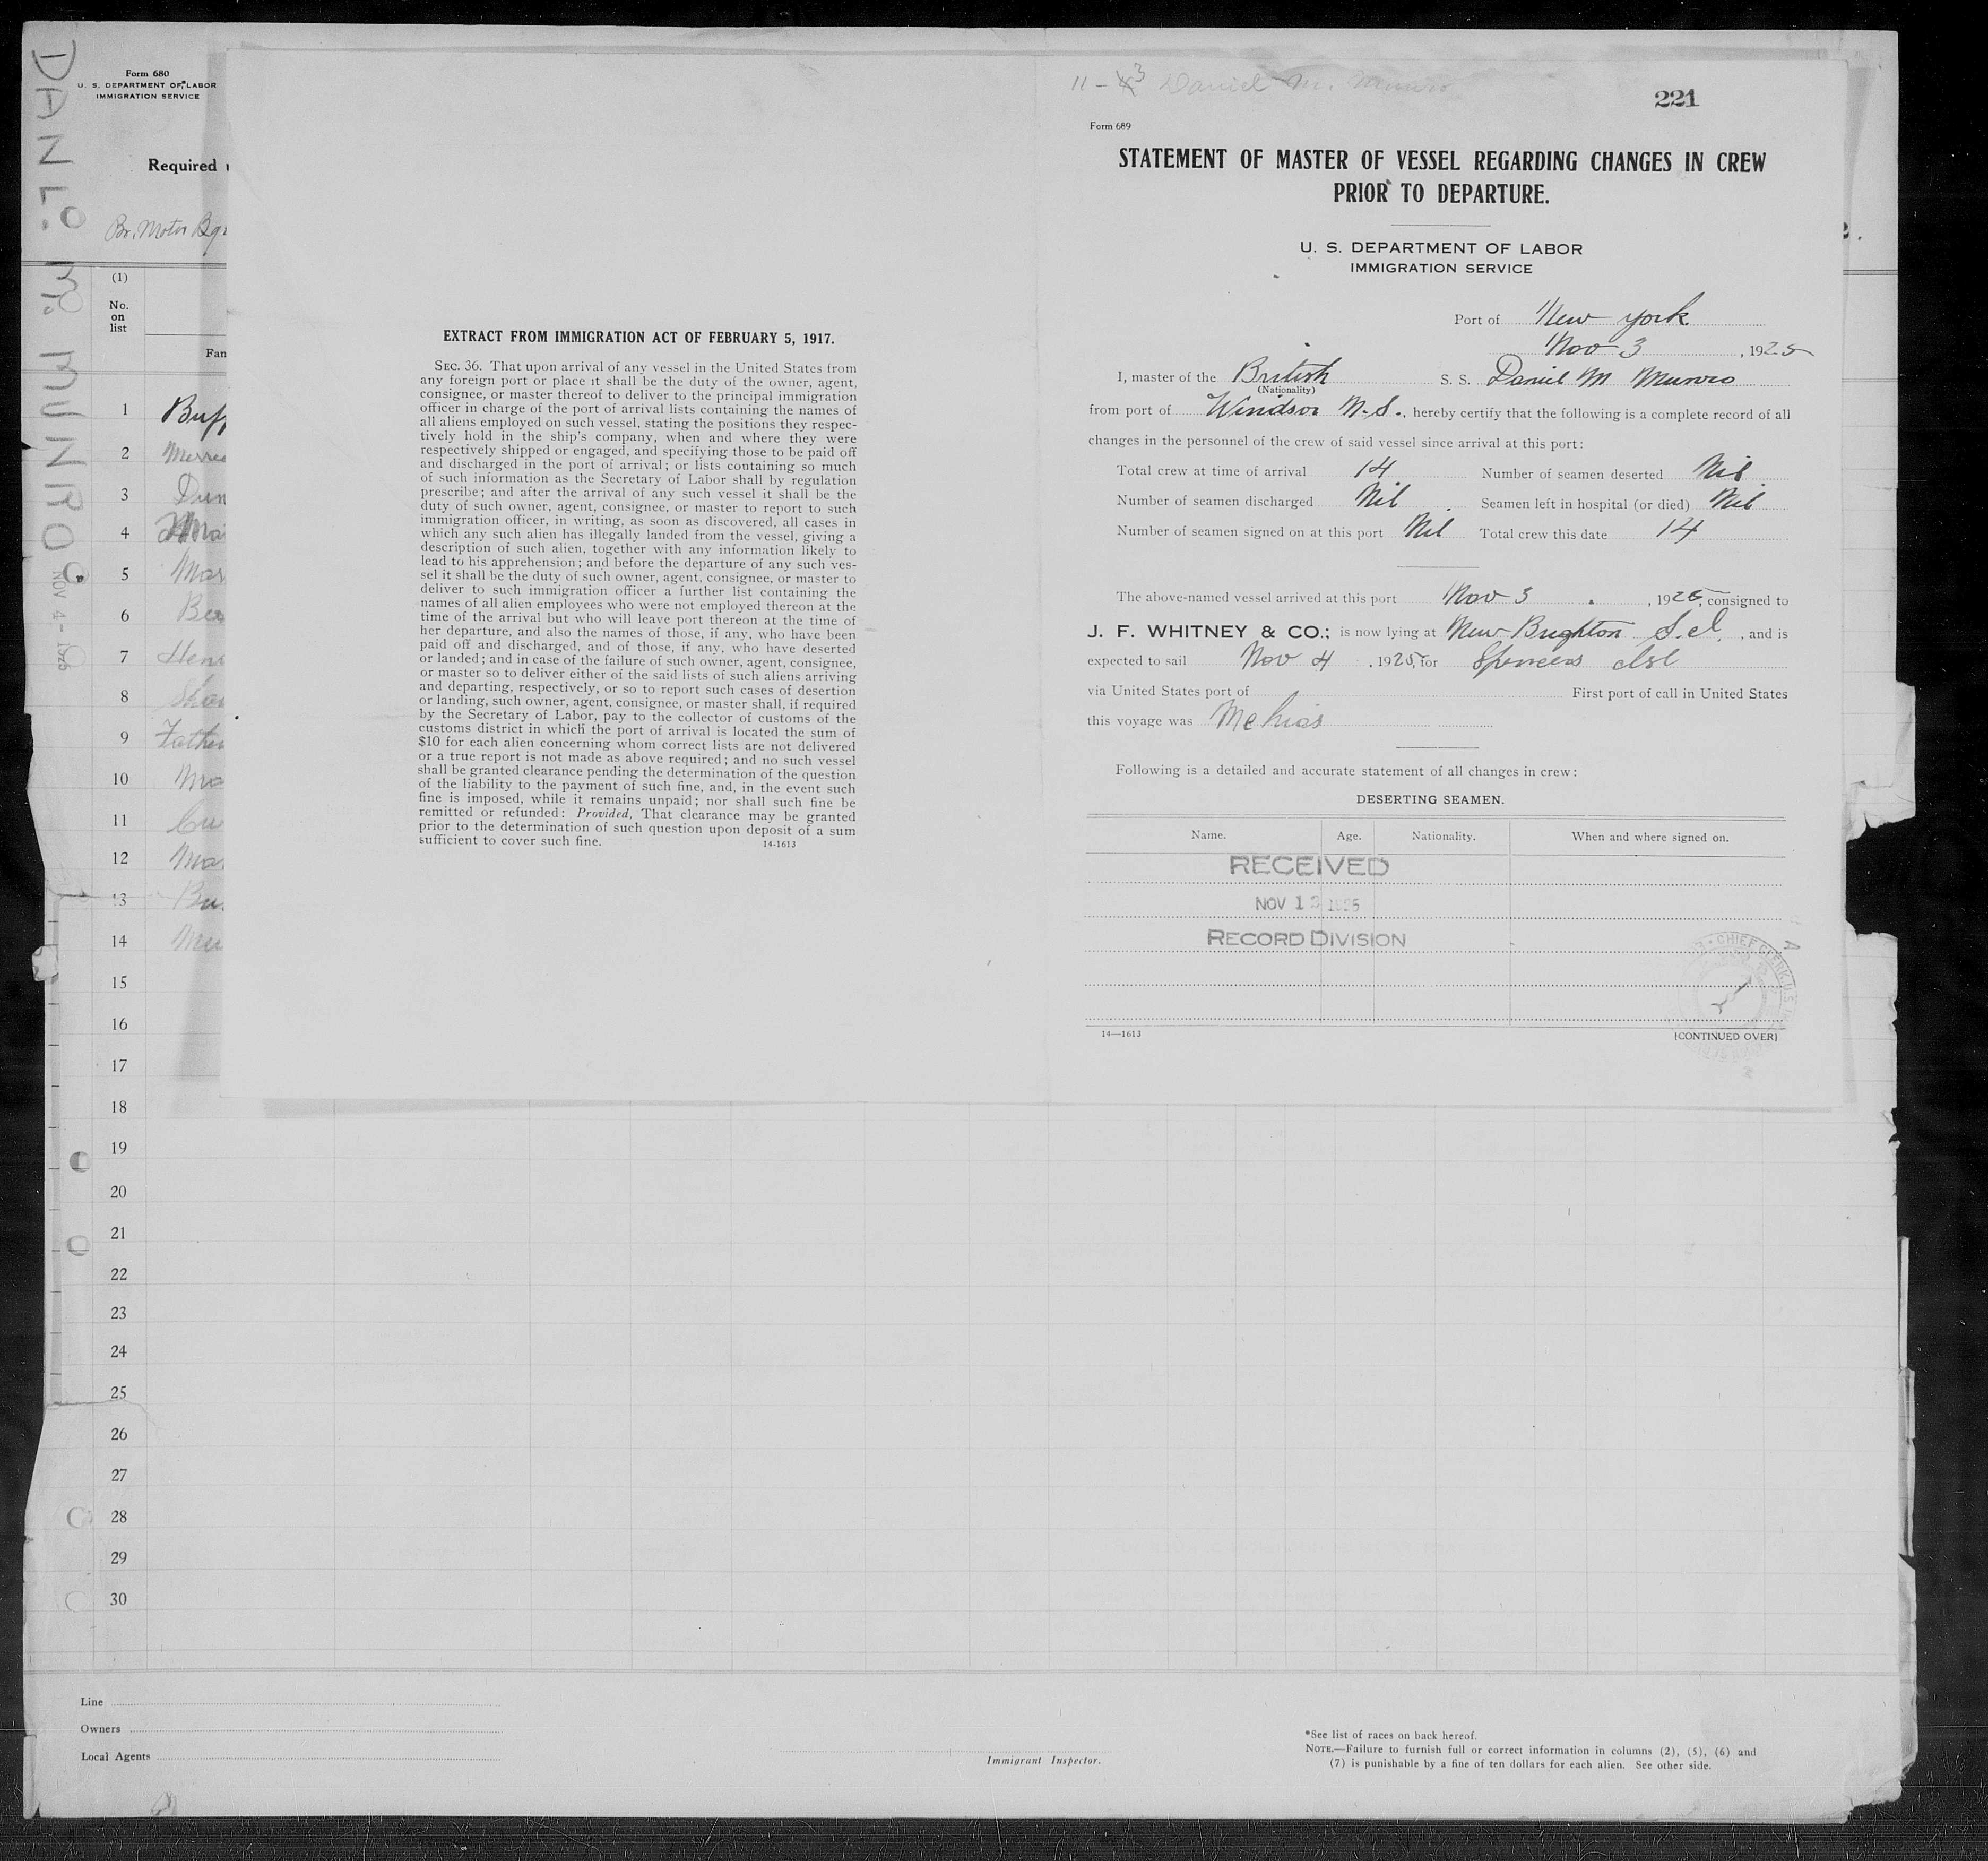 DANL. M. MUNRO
NOV 4 - 1925
Form 680
U. S. DEPARTMENT OF LABOR
IMMIGRATION SERVICE
Required
Br. Motor
(1)
No.
on
list
Fam
1 Buff
2 Merri
3 Dun
4
5 Mar
6 Bea
7 Hen
8
9 Father
10 Ma
11
12 Ma
13 Bu
14 Mu
15
16
17
18
19
20
21
22
23
24
25
26
27
28
29
30
EXTRACT FROM IMMIGRATION ACT OF FEBRUARY 5, 1917.
SEC. 36. That upon arrival of any vessel in the United States from
any foreign port or place it shall be the duty of the owner, agent,
consignee, or master thereof to deliver to the principal immigration
officer in charge of the port of arrival lists containing the names of
all aliens employed on such vessel, stating the positions they respec-
tively hold in the ship's company, when and where they were
respectively shipped or engaged, and specifying those to be paid off
and discharged in the port of arrival; or lists containing so much
of such information as the Secretary of Labor shall by regulation
prescribe; and after the arrival of any such vessel it shall be the
duty of such owner, agent, consignee, or master to report to such
immigration officer, in writing, as soon as discovered, all cases in
which any such alien has illegally landed from the vessel, giving a
description of such alien, together with any information likely to
lead to his apprehension; and before the departure of any such ves-
sel it shall be the duty of such owner, agent, consignee, or master to
deliver to such immigration officer a further list containing the
names of all alien employees who were not employed thereon at the
time of the arrival but who will leave port thereon at the time of
her departure, and also the names of those, if any, who have been
paid off and discharged, and of those, if any, who have deserted
or landed; and in case of the failure of such owner, agent, consignee,
or master so to deliver either of the said lists of such aliens arriving
and departing, respectively, or so to report such cases of desertion
or landing, such owner, agent, consignee, or master shall, if required
by the Secretary of Labor, pay to the collector of customs of the
customs district in which the port of arrival is located the sum of
$10 for each alien concerning whom correct lists are not delivered
or a true report is not made as above required; and no such vessel
shall be granted clearance pending the determination of the question
of the liability to the payment of such fine, and, in the event such
fine is imposed, while it remains unpaid; nor shall such fine be
remitted or refunded: Provided, That clearance may be granted
prior to the determination of such question upon deposit of a sum
sufficient to cover such fine. 14-1613
11-3 Daniel M. Munro
221
Form 689
STATEMENT OF MASTER OF VESSEL REGARDING CHANGES IN CREW
PRIOR TO DEPARTURE.
U. S. DEPARTMENT OF LABOR
IMMIGRATION SERVICE
Port of New York
Nov 3, 1925
I, master of the British S. S. Daniel M Munro
(Nationality)
from port of Windsor N.S., hereby certify that the following is a complete record of all
changes in the personnel of the crew of said vessel since arrival at this port:
Total crew at time of arrival 14 Number of seamen deserted Nil
Number of seamen discharged Nil Seamen left in hospital (or died) Nil
Number of seamen signed on at this port Nil Total crew this date 14
The above-named vessel arrived at this port Nov 3, 1925, consigned to
J. F. WHITNEY & CO.; is now lying at New Brighton S.I., and is
expected to sail Nov 4, 1925, for Spencers Isl
via United States port of First port of call in United States
this voyage was
Following is a detailed and accurate statement of all changes in crew:
DESERTING SEAMEN.
Name. Age. Nationality. When and where signed on.
RECEIVED
NOV 13 1925
RECORD DIVISION
CHIEF CLERK U.S.
14—1613
[CONTINUED OVER]
Line
Owners
Local Agents
Immigrant Inspector.
*See list of races on back hereof.
NOTE.—Failure to furnish full or correct information in columns (2), (5), (6) and
(7) is punishable by a fine of ten dollars for each alien. See other side.